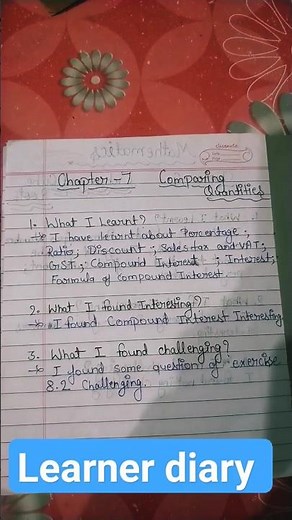 Chapter-7 Comparing
Quantities
1. What I Learnt?
→ I have learnt about Percentage;
Ratio; Discount; Sales tax and VAT;
GST; Compound Interest; Interest;
Formula of compound Interest.
2. What I found Interesing?
→ I found Compound Interest Interesting
3. What I found challenging?
→ I found some question of exercise
8.2 Challenging.
Learner diary